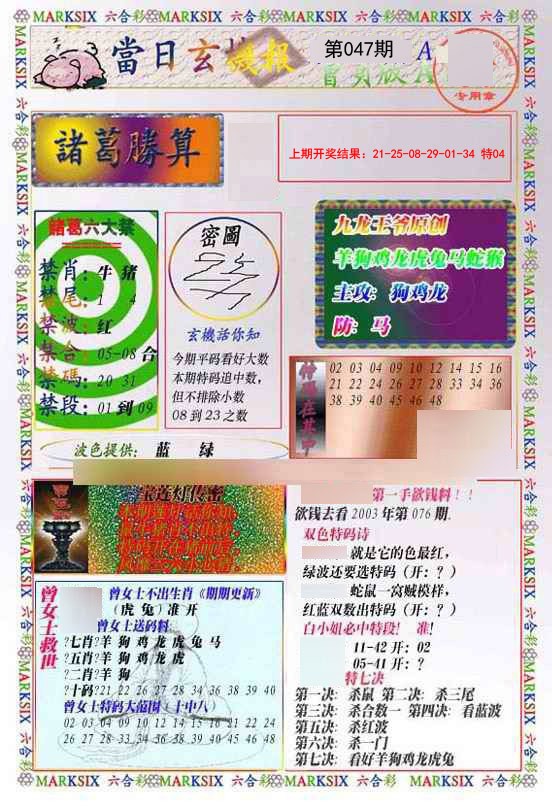 MARKSIX 六合彩 MARKSIX 六合彩 MARKSIX 六合彩 MARKSIX 六合彩
當日玄機报
第047期
A
专用章
諸葛勝算
上期开奖结果：21-25-08-29-01-34 特04
諸葛六大禁
禁肖：牛 猪
禁尾：1 4
禁波：红
禁合：05-08 合
禁碼：20 31
禁段：01 到 09
密圖
玄機話你知
今期平码看好大数
本期特码追中数，
但不排除小数
08 到 23 之数
九龙王爷原创
羊狗鸡龙虎兔马蛇猴
主攻：狗鸡龙
防：马
02 03 04 09 10 12 14 15 16
21 22 24 26 27 28 33 34 36
38 39 40 45 46 48
波色提供： 蓝 绿
第一手欲钱料！！
欲钱去看 2003 年第 076 期.
双色特码诗
就是它的色最红，
绿波还要选特码（开：？）
蛇鼠一窝贼模样，
红蓝双数出特码（开：？）
白小姐必中特段！ 准！
11-42 开：02
05-41 开：？
特七决
第一决：杀鼠 第二决：杀三尾
第三决：杀合数一 第四决：看蓝波
第五决：杀红波
第六决：杀一门
第七决：看好羊狗鸡龙虎兔
曾女士救世
曾女士不出生肖《期期更新》
（虎 兔）准 开
曾女士送码料
?七肖?羊 狗 鸡 龙 虎 兔 马
?五肖?羊 狗 鸡 龙 虎
?二肖?羊 狗
?十码?21 22 26 27 28 34 36 38 39 40
曾女士特码大范围（十中八）
02 03 04 09 10 12 14 15 16 21 22 24
26 27 28 33 34 36 38 39 40 45 46 48
MARKSIX 六合彩 MARKSIX 六合彩 MARKSIX 六合彩 MARKSIX 六合彩